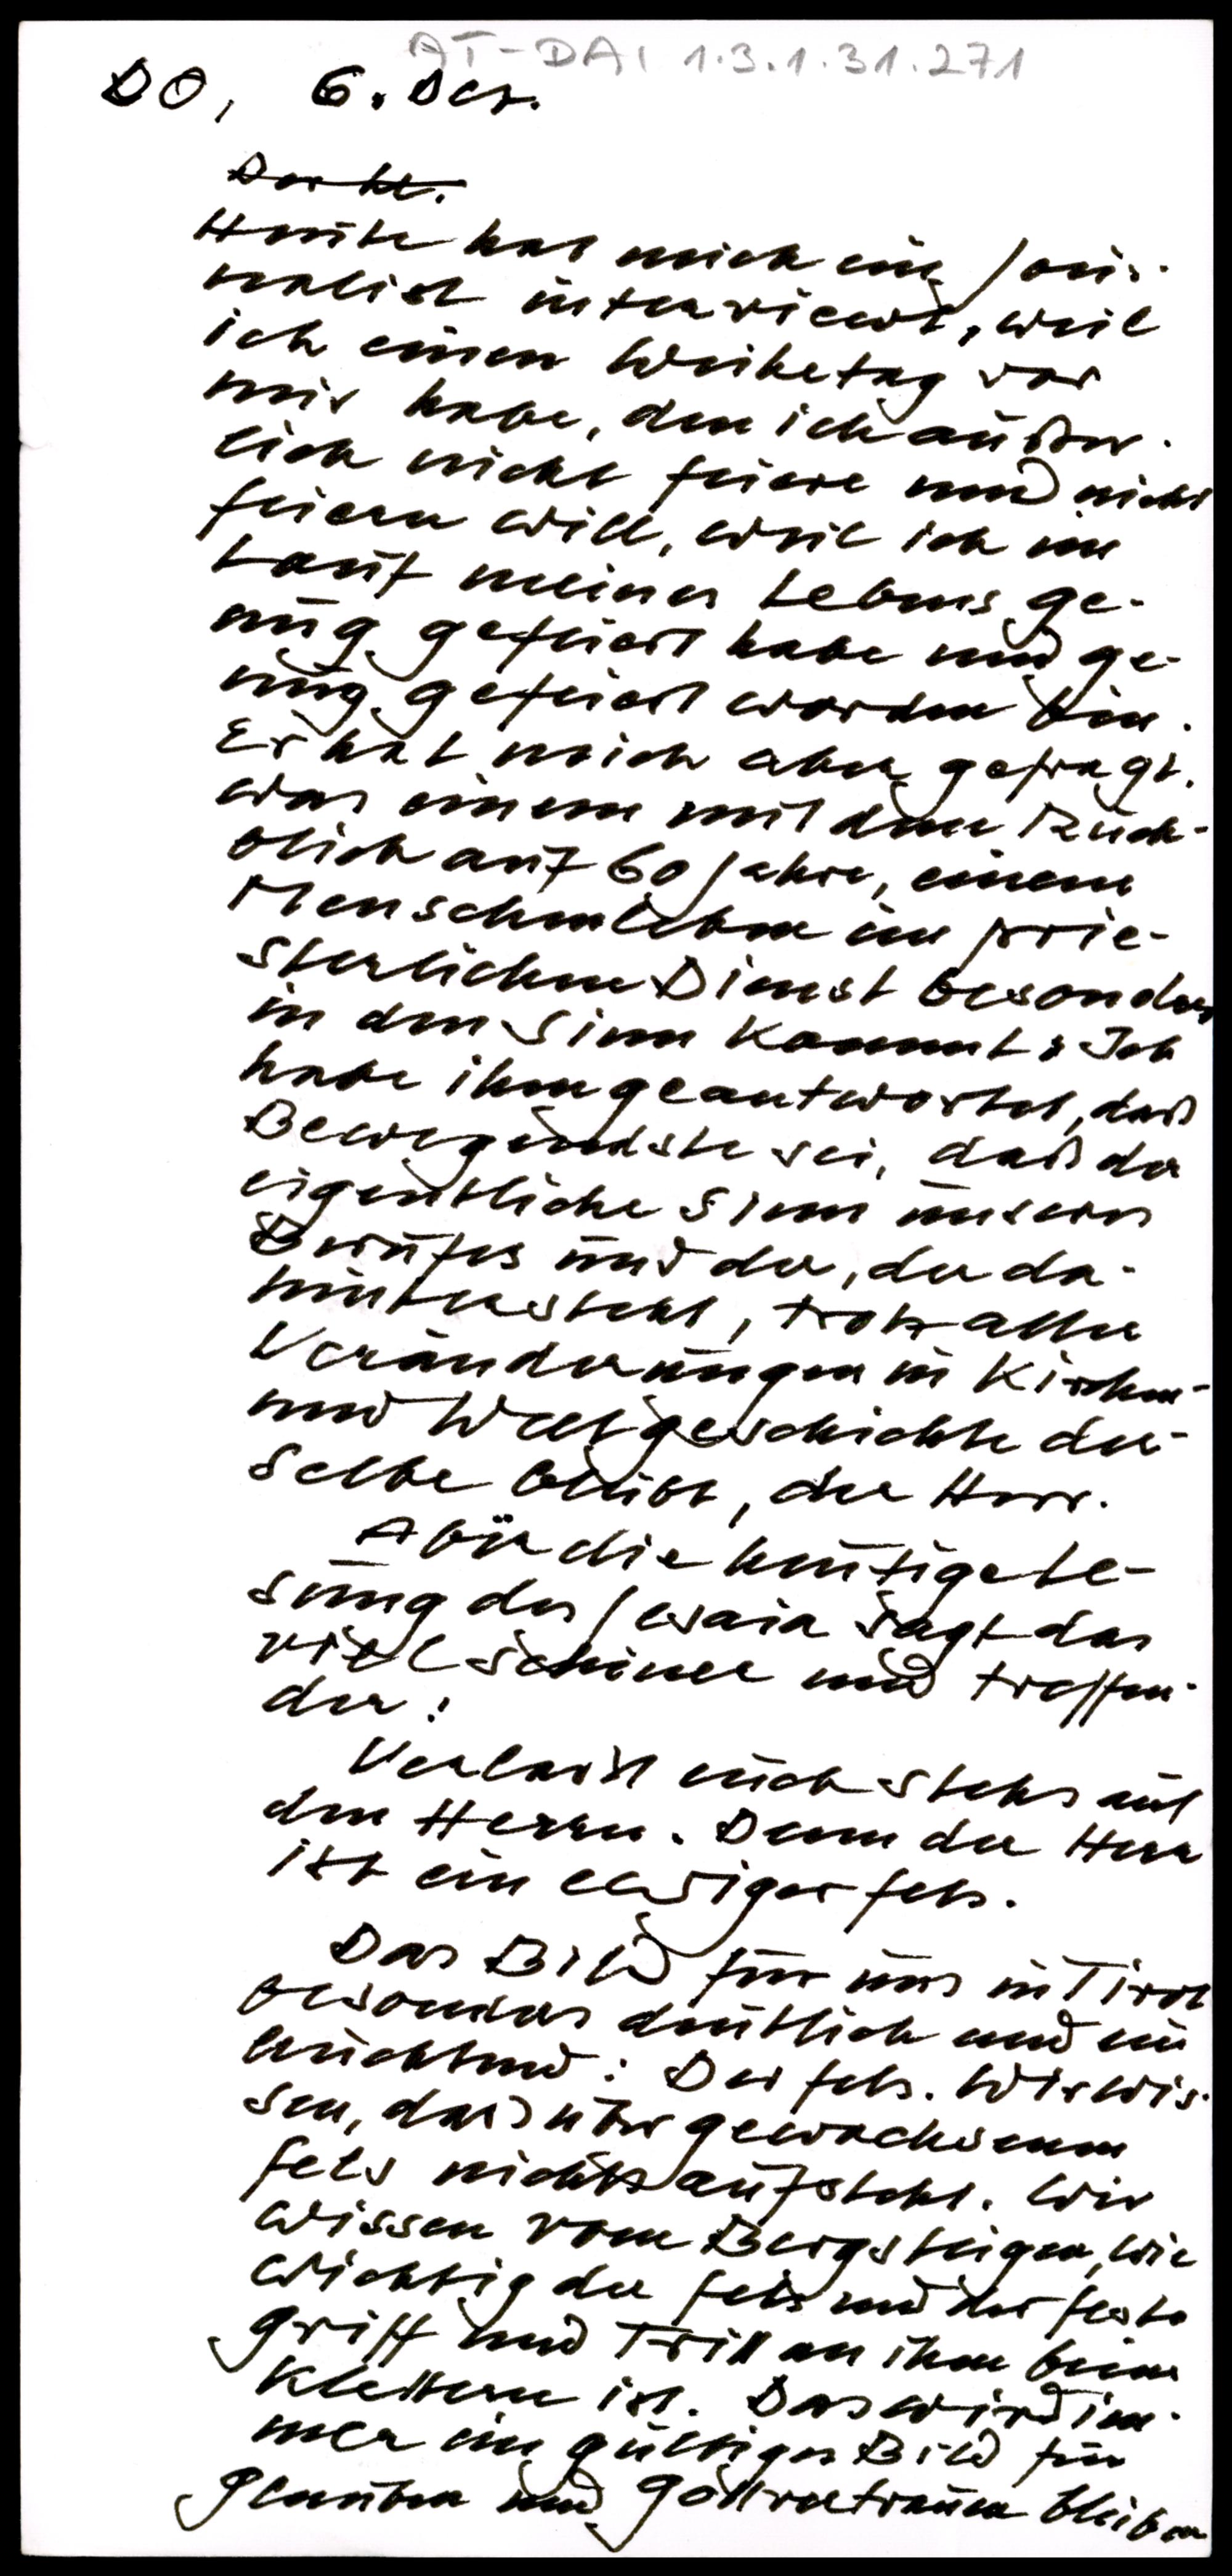 AT-DAI 1.3.1.31.271
DO, 6. Dez.
Der hl.
Heute hat mich ein Jour-
nalist interviewt, weil
ich einen Weihetag vor
mir habe, den ich äußer-
lich nicht feiere und nicht
feiern will, weil ich im
Lauf meines Lebens ge-
nug gefeiert habe und ge-
nug gefeiert worden bin.
Er hat mich aber gefragt,
was einem mit dem Rück-
blick auf 60 Jahre, einem
Menschenleben im prie-
sterlichen Dienst besonders
in den Sinn kommt: Ich
habe ihm geantwortet, daß
Bewegendste sei, daß der
eigentliche Sinn unseres
Berufes und der, der da-
hintersteht, trotz aller
Veränderungen in Kirchen-
und Weltgeschichte der-
selbe bleibt, der Herr.
Aber die heutige Le-
sung des Jesaia sagt das
viel schöner und treffen-
der:
Verlasst euch stets auf
den Herrn. Denn der Herr
ist ein ewiger Fels.
Das Bild für uns in Tirol
besonders deutlich und ein
leuchtend: Der Fels. Wir wis-
sen, dass über gewachsenem
Fels nichts aufsteht. Wir
wissen vom Bergsteigen, wie
wichtig der Fels und der feste
Griff und Tritt an ihm beim
Klettern ist. Das wird im-
mer ein gültiges Bild für
Glauben und Gottvertrauen bleiben